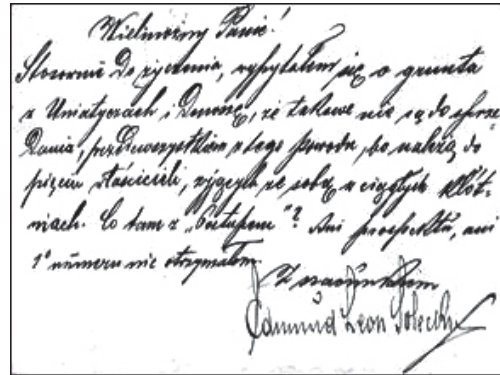 Wielmożny Panie!
Stosownie do życzenia, wypytałem się o grunta
w Uniatyczach i donoszę, że takowe nie są do sprze
dania, przedewszystkiem z tego powodu, bo należą do
pięciu właścicieli, żyjących ze sobą w ciągłych kłót-
niach. Co tam z „Postępem"? Ani prospektu, ani
1° numeru nie otrzymałem.
Z szacunkiem
Edmund Leon Solecki